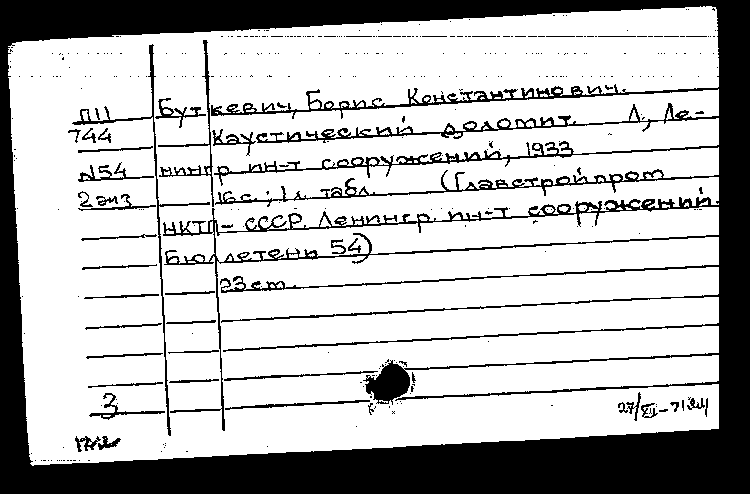 П11 Буткевич, Борис Константинович.
744 Каустический доломит. Л., Ле-
N54 нингр ин-т сооружений, 1933
2 экз 16с.; 1 л. табл. (Главстройпром
НКТП - СССР. Ленингр. ин-т сооружений.
Бюллетень 54)
23 см.
3
27/XII-71